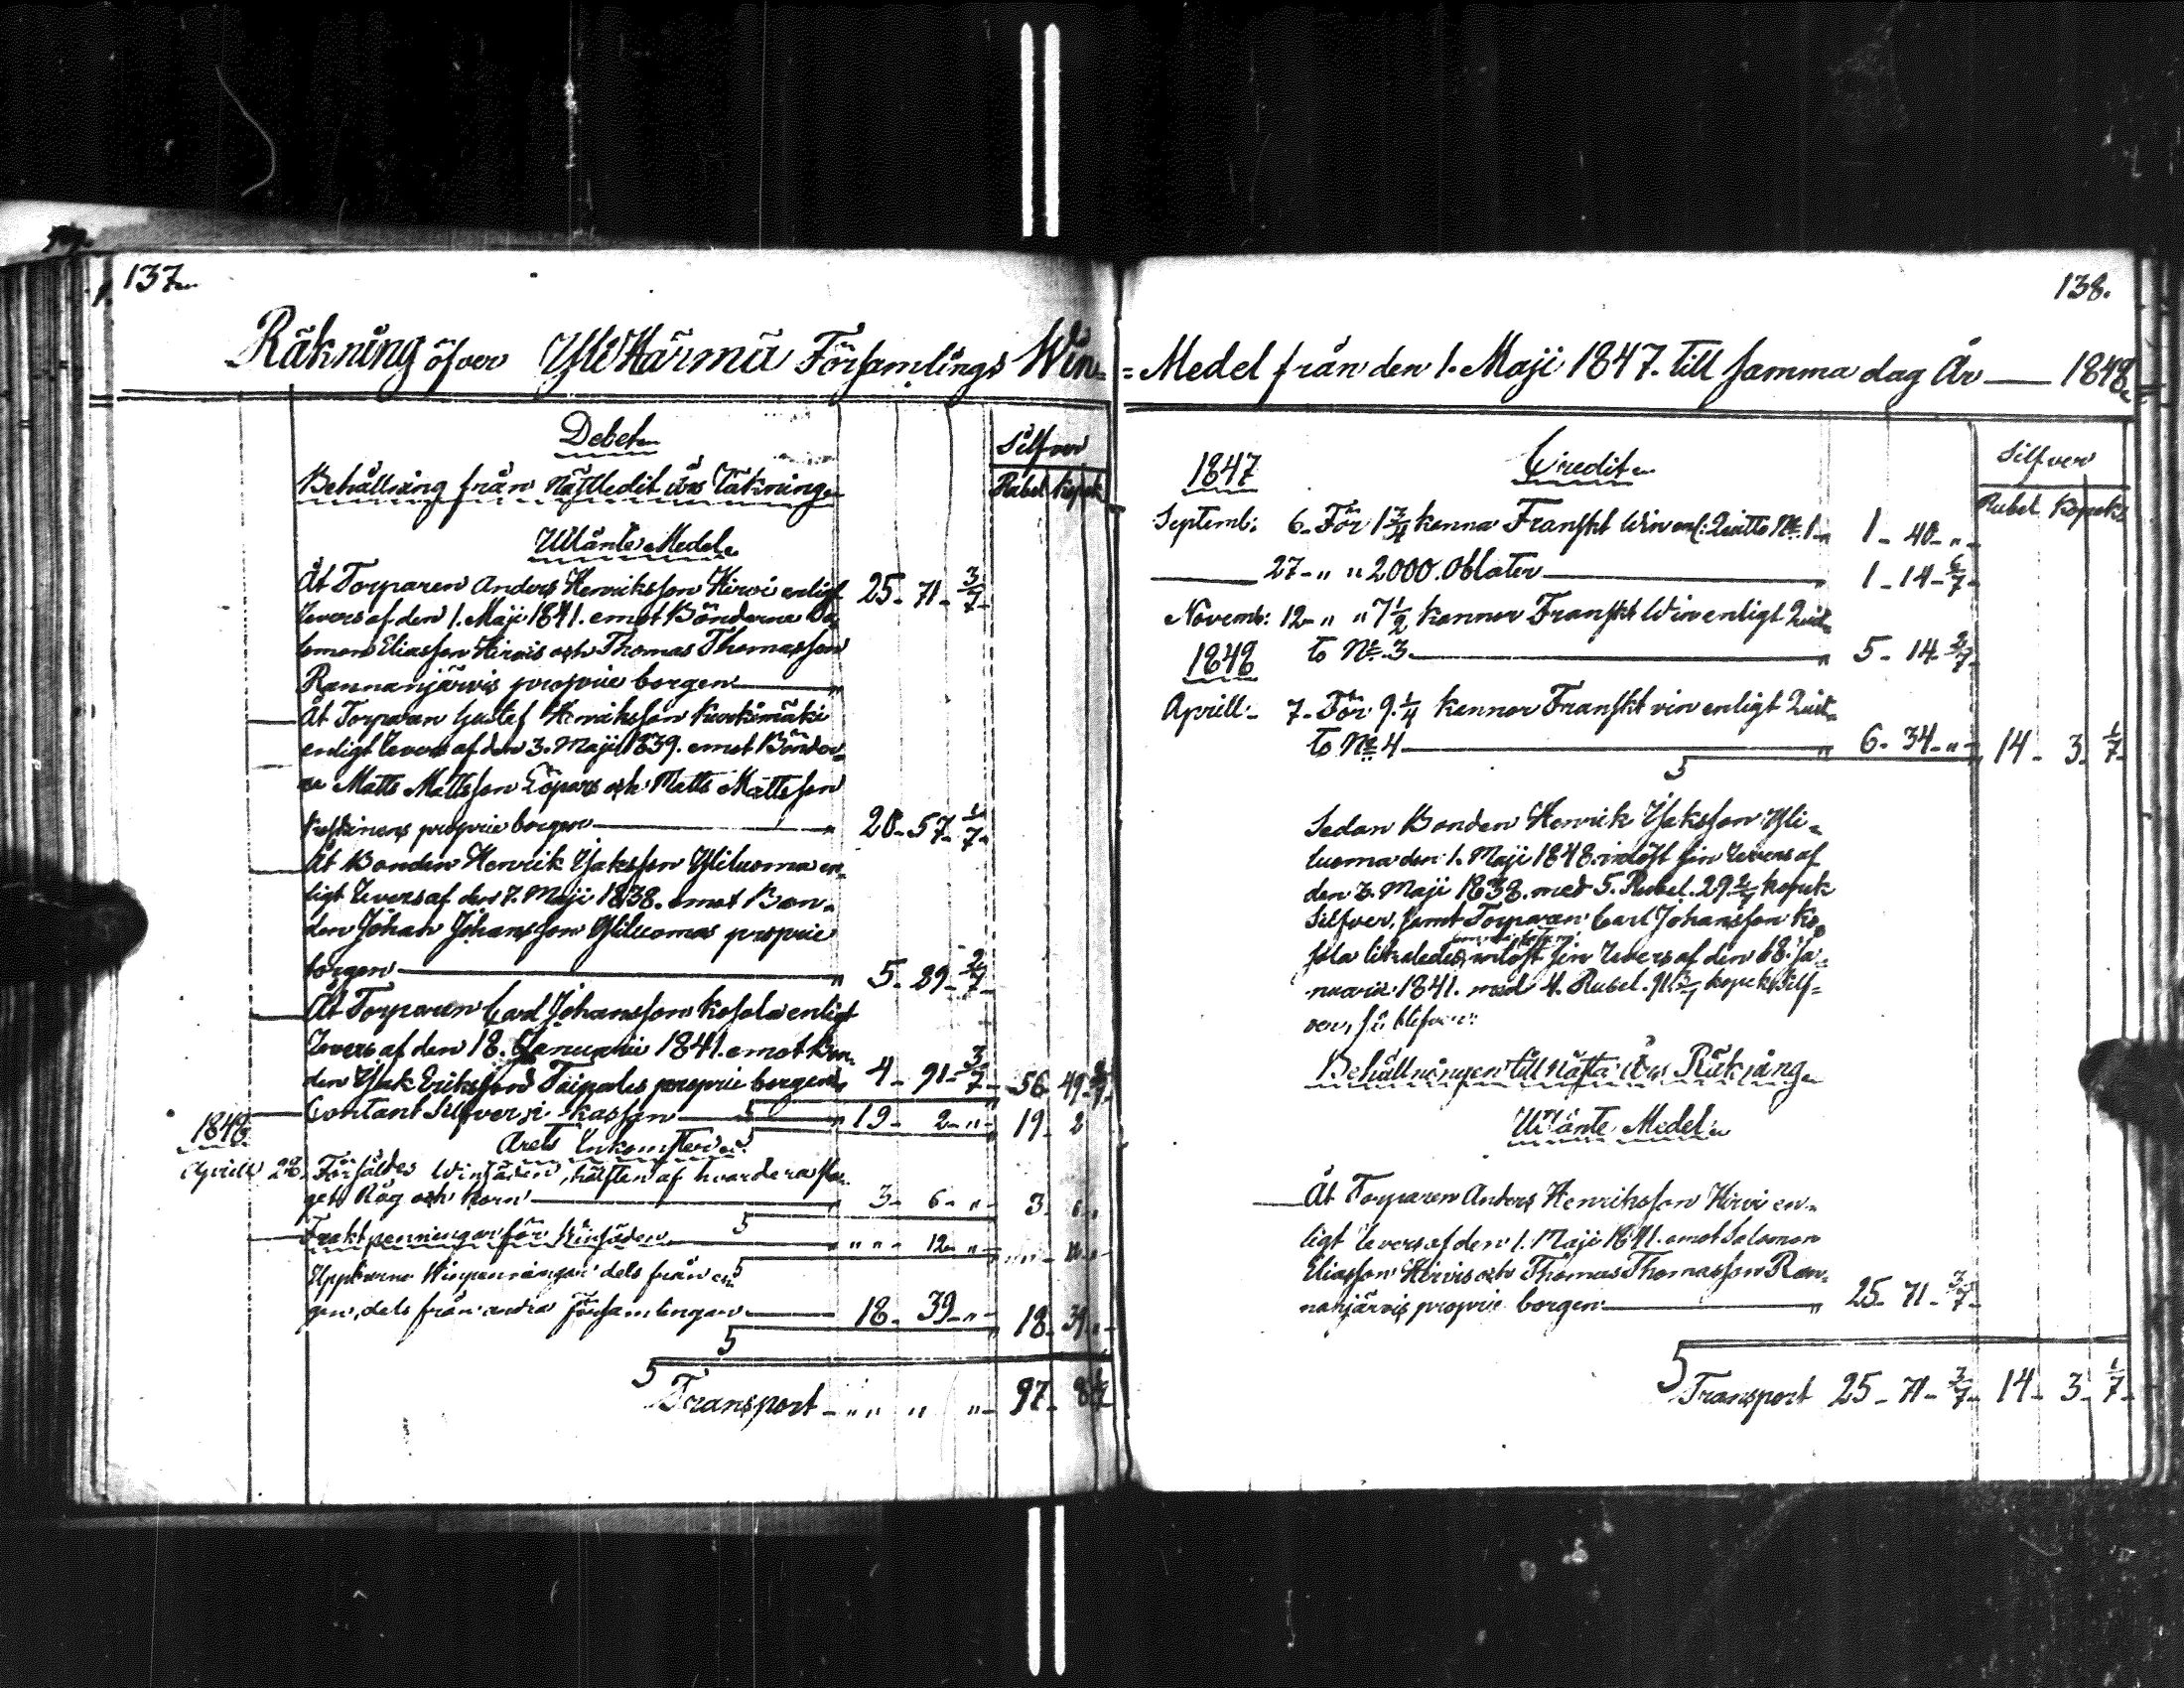 137.
Räkning öfver Ylihärmä Församlings Win-
Debet.
Silfver
Rubel Kopek
Behållning från nästledit års Räkning.
Utlånte Medel.
Åt Torparen Anders Henriksson Hirvi enligt 25 - 71 - 3/7
Revers af den 1. Maji 1841. emot Bönderne Sa-
lomon Eliasson Hirvis och Thomas Thomasson
Rannanjärvis proprie borgen
Åt Torparen Gustaf Henriksson Kurkimäki
enligt Revers af den 3. Maji 1839. emot Bönder-
ne Matts Mattsson Löpars och Matts Mattsson
Keskinens proprie borgen 20 - 57 - 1/7
Åt Bonden Henrik Isaksson Yliluoma en-
ligt Revers af den 7. Maji 1838. emot Bon-
den Johan Johansson Yliluomas proprie
borgen 5 - 29 - 2/7
Åt Torparen Carl Johansson Kosola enligt
Revers af den 18. Januarii 1841. emot Bon-
den Isak Eriksson Taipales proprie borgen 4 - 91 - 3/7 56 - 49 - 2/7
Contant Silfver i kassan 19 - 2 - " 19 2
1848 Årets Inkomster.
Aprill 28. Försåldes Winsäden, hälften af hvardera sla-
get Råg och Korn 3 - 6 - " 3 6 "
Fraktpenningar för Winsäden " " - 12 - " " " 12 "
Uppburne Winpenningar dels från
gen, dels från andra församlingar 18 - 39 - " 18 - 39 "
Transport - " " " " 97 - 8 2/7
138.
Medel från den 1. Maji 1847. till samma dag År 1848.
1847 Credit.
Silfver
Rubel Kopek
Septemb: 6. För 1 3/4 kanna Franskt Win enl: Quitto No. 1 1 - 40 - "
27 - " " 2000. Oblater 1 - 14 - 6/7
Novemb: 12 - " " 7 1/2 kannor Franskt Win enligt Quit-
to No. 3 5 - 14 - 2/7
1848
Aprill 7. För 9 1/4 kannor Franskt vin enligt Quit-
to No. 4 6 - 34 - " 14 - 3 - 1/7
Sedan Bonden Henrik Isaksson Yli-
luoma den 1. Maji 1848. inlöst sin Revers af
den 7. Maji 1838. med 5. Rubel. 29 2/7 kopek
Silfver, samt Torparen Carl Johansson Ko-
sola likaledes inlöst sin Revers af den 18. Ja-
nuarii 1841. med 4. Rubel. 91 3/7 kopek Silf-
ver, så blifver:
Behållningen till nästa års Räkning.
Utlånte Medel.
Åt Torparen Anders Henriksson Hirvi en-
ligt Revers af den 1. Maji 1841. emot Salomon
Eliasson Hirvis och Thomas Thomasson Ran-
nanjärvis proprie borgen 25 - 71 - 3/7
Transport 25 - 71 - 3/7 14 - 3 - 1/7